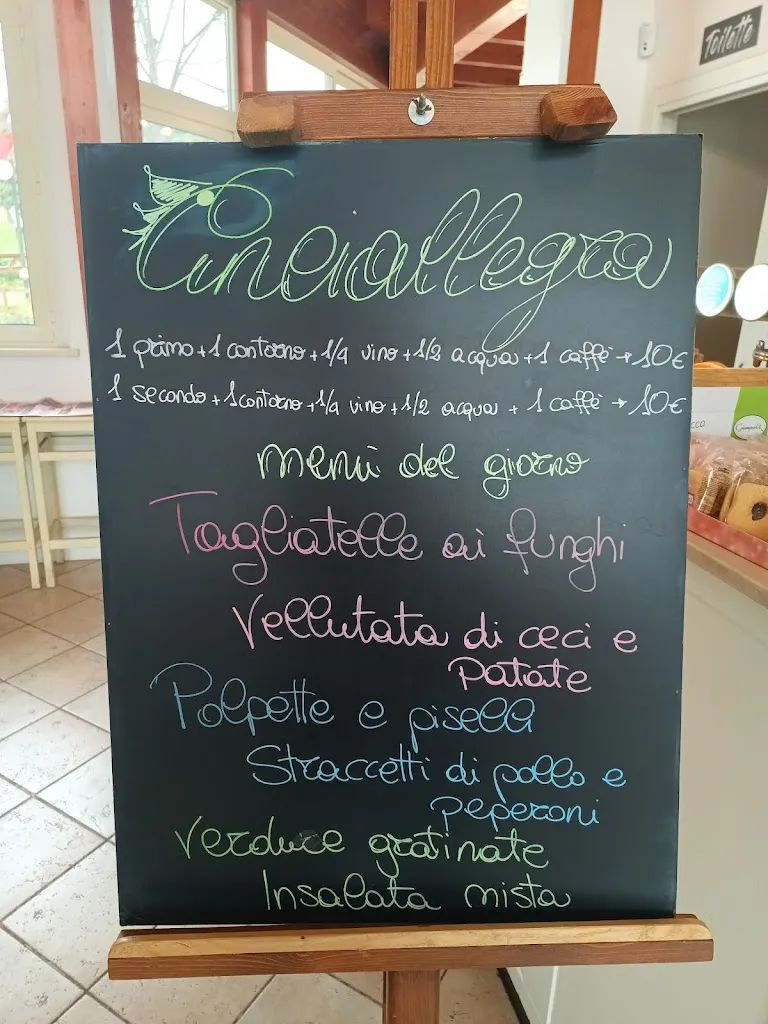 Toilette
Cinciallegra
1 primo + 1 contorno + 1/4 vino + 1/2 acqua + 1 caffè → 10€
1 secondo + 1 contorno + 1/4 vino + 1/2 acqua + 1 caffè → 10€
menù del giorno
Tagliatelle ai funghi
Vellutata di ceci e
patate
Polpette e piselli
Straccetti di pollo e
peperoni
Verdure gratinate
Insalata mista